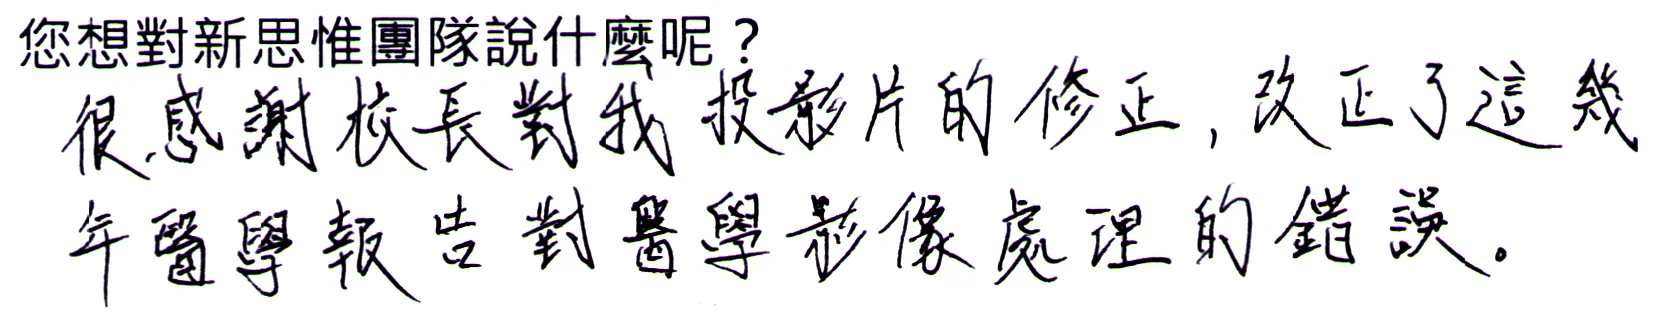 您想對新思惟團隊說什麼呢？
很感謝校長對我投影片的修正，改正了這幾
年醫學報告對醫學影像處理的錯誤。